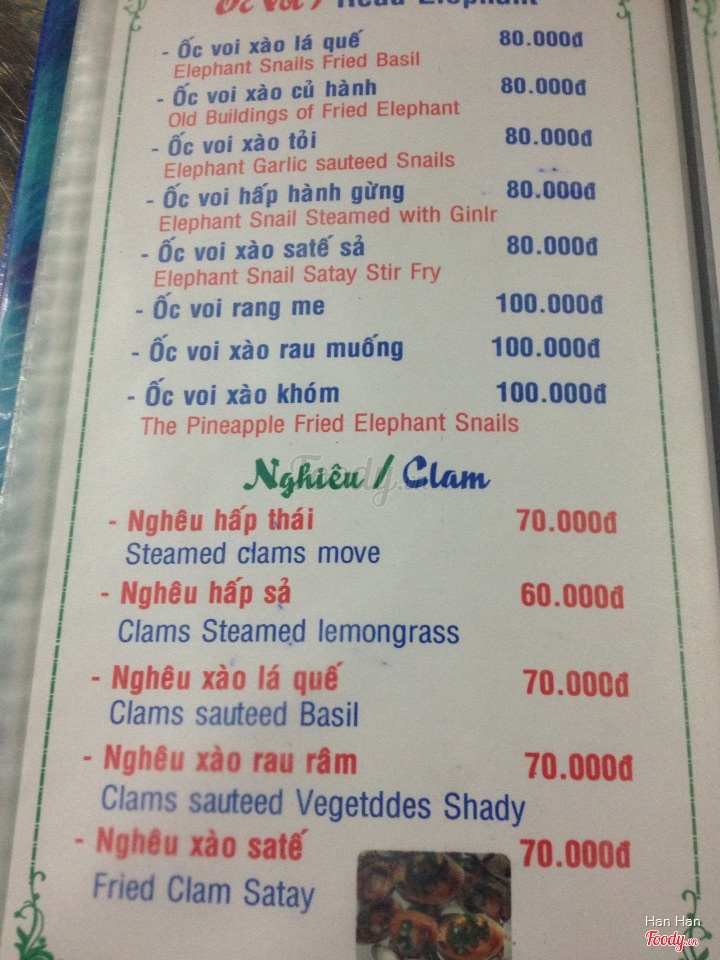 Ốc Voi / Head Elephant
- Ốc voi xào lá quế 80.000đ
Elephant Snails Fried Basil
- Ốc voi xào củ hành 80.000đ
Old Buildings of Fried Elephant
- Ốc voi xào tỏi 80.000đ
Elephant Garlic sauteed Snails
- Ốc voi hấp hành gừng 80.000đ
Elephant Snail Steamed with Ginlr
- Ốc voi xào satế sả 80.000đ
Elephant Snail Satay Stir Fry
- Ốc voi rang me 100.000đ
- Ốc voi xào rau muống 100.000đ
- Ốc voi xào khóm 100.000đ
The Pineapple Fried Elephant Snails
Nghiêu / Clam
Foody.vn
- Nghêu hấp thái 70.000đ
Steamed clams move
- Nghêu hấp sả 60.000đ
Clams Steamed lemongrass
- Nghêu xào lá quế 70.000đ
Clams sauteed Basil
- Nghêu xào rau râm 70.000đ
Clams sauteed Vegetddes Shady
- Nghêu xào satế 70.000đ
Fried Clam Satay
Han Han
Foody.vn